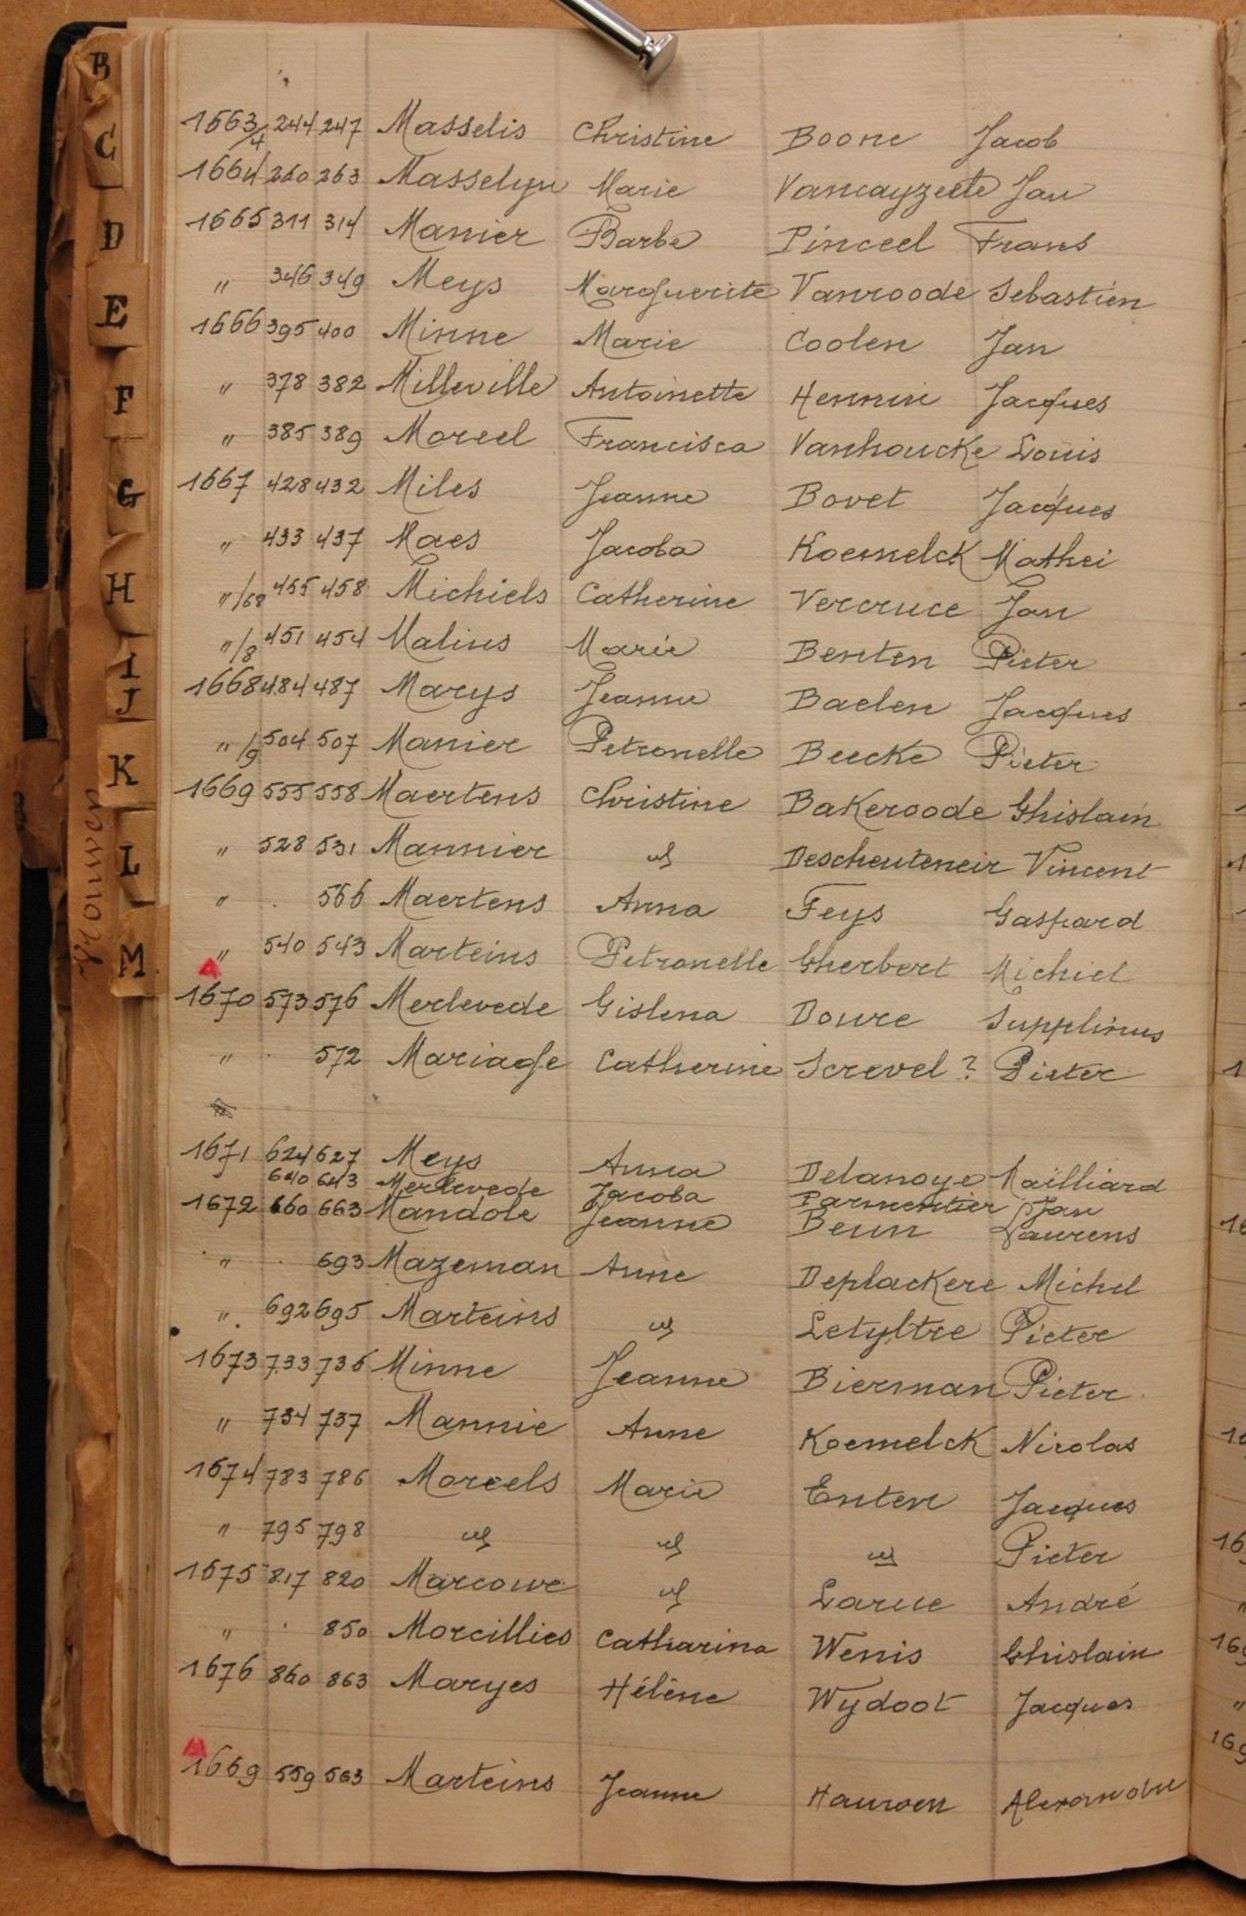 B
C
D
E
F
G
H
I
J
K
L
M
Vrouwen
1663/4 244 247 Masselis Christine Boone Jacob
1664 260 263 Masselyn Marie Vancayzeele Jan
1665 311 314 Manier Barbe Pinceel Frans
" 346 349 Meys Marguerite Vanroode Sebastien
1666 395 400 Minne Marie Coolen Jan
" 378 382 Milleville Antoinette Hennin Jacques
" 385 389 Moreel Francisca Vanhoucke Louis
1667 428 432 Miles Jeanne Bovet Jacques
" 433 437 Maes Jacoba Koemelck Mathei
"/68 455 458 Michiels Catherine Vercruce Jan
"/8 451 454 Malius Marie Benten Pieter
1668 484 487 Marys Jeanne Baelen Jacques
"/9 504 507 Manier Petronelle Beecke Pieter
1669 555 558 Maertens Christine Bakeroode Ghislain
" 528 531 Mannier id Descheuteneir Vincent
" . 566 Maertens Anna Feys Gaspard
" 540 543 Marteins Petronelle Gherbert Michiel
1670 573 576 Merlevede Gislena Doure Supplinus
" . 572 Mariage Catherine Screvel ? Pieter
1671 624 627 Meys Anna Delanoye Mailliard
640 643 Merlevede Jacoba Parmentier Jan
1672 660 663 Mandole Jeanne Beun Laurens
" . 693 Mazeman Anne Deplackere Michel
" 692 695 Marteins id Letyltre Pieter
1673 733 736 Minne Jeanne Bierman Pieter
" 734 737 Mannie Anne Koemelck Nicolas
1674 783 786 Moreels Marie Enten Jacques
" 795 798 id id id Pieter
1675 817 820 Marcowe id Larue André
" . 850 Morcillies Catharina Wenis Ghislain
1676 860 863 Maryes Hélène Wydoot Jacques
1669 559 563 Marteins Jeanne Hauwen Alexandre